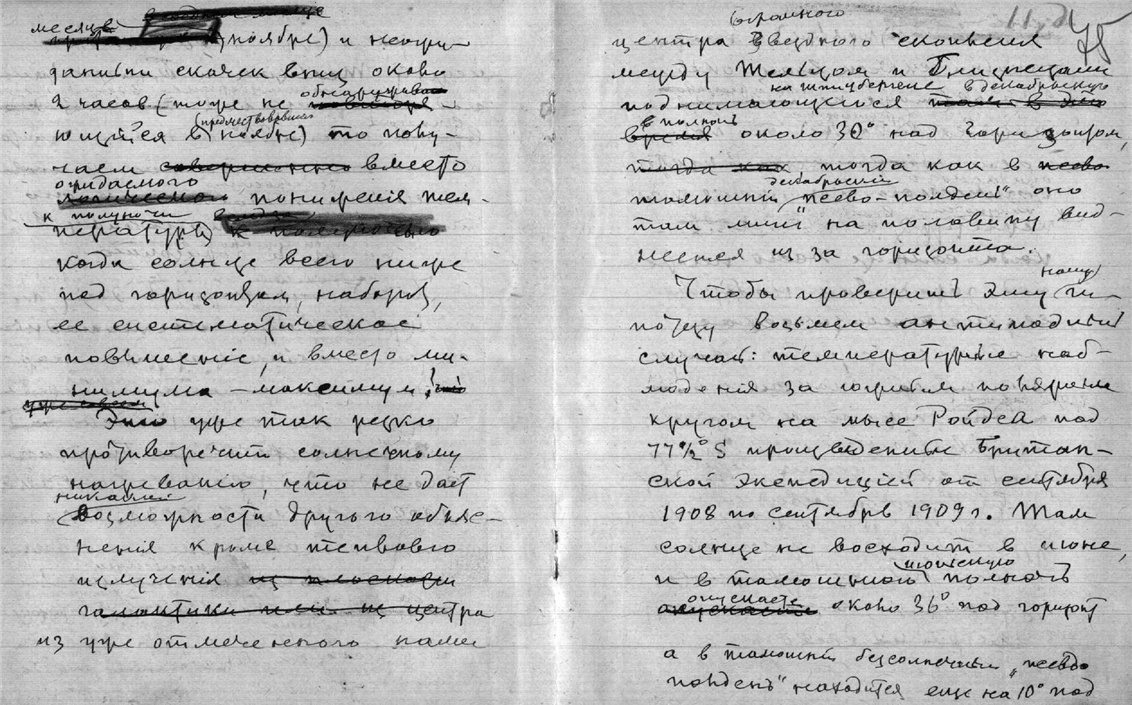 месяцев
ноябре) и неожи-
данный скачек вниз около
2 часов (тоже не обнаружива-
ющийся в предшествовавшем ноябре) то полу-
чаем вместо
ожидаемого понижения тем-
пературы к полуночи
когда солнце всего ниже
под горизонтом, наоборот,
ее систематическое
повышение, и вместо ми-
нимума — максимум!
Это уже так резко
противоречит солнечному
нагреванию, что не дает
никакой возможности другого объяс-
нения кроме теплового
излучения
центра
из уже отмеченного нами
огромного
центра звездного скопления
между Тельцом и Близнецами
поднимающегося на Шпицбергене в декабрьскую
полночь около 30° над горизонтом,
тогда как в
тамошний декабрьский „псево-полдень" оно
там лишь на половину вид-
неется из за горизонта.
Чтобы проверить эту нашу ги-
потезу возьмем антиподный
случай: температурные наб-
людения за южным полярным
кругом на мысе Ройдса под
77½° S произведенные Британ-
ской экспедицией от сентября
1908 по сентябрь 1909 г. Там
солнце не восходит в июне,
и в тамошнюю июньскую полночь
опускаете около 36° под горизонт
а в тамошний безсолнечный „псевдо
полдень" находится еще на 10° под
75